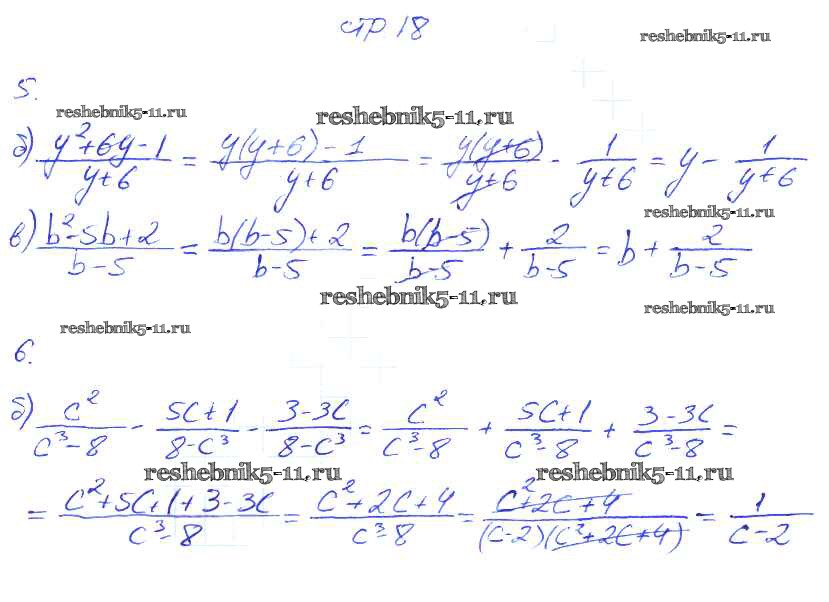 стр 18
reshebnik5-11.ru
5.
reshebnik5-11.ru reshebnik5-11.ru
б) (y²+6y-1)/(y+6) = (y(y+6)-1)/(y+6) = (y(y+6))/(y+6) - 1/(y+6) = y - 1/(y+6)
reshebnik5-11.ru
в) (b²-5b+2)/(b-5) = (b(b-5)+2)/(b-5) = (b(b-5))/(b-5) + 2/(b-5) = b + 2/(b-5)
reshebnik5-11.ru reshebnik5-11.ru
reshebnik5-11.ru
6.
б) c²/(c³-8) - (5c+1)/(8-c³) - (3-3c)/(8-c³) = c²/(c³-8) + (5c+1)/(c³-8) + (3-3c)/(c³-8) =
reshebnik5-11.ru reshebnik5-11.ru
= (c²+5c+1+3-3c)/(c³-8) = (c²+2c+4)/(c³-8) = (c²+2c+4)/((c-2)(c²+2c+4)) = 1/(c-2)